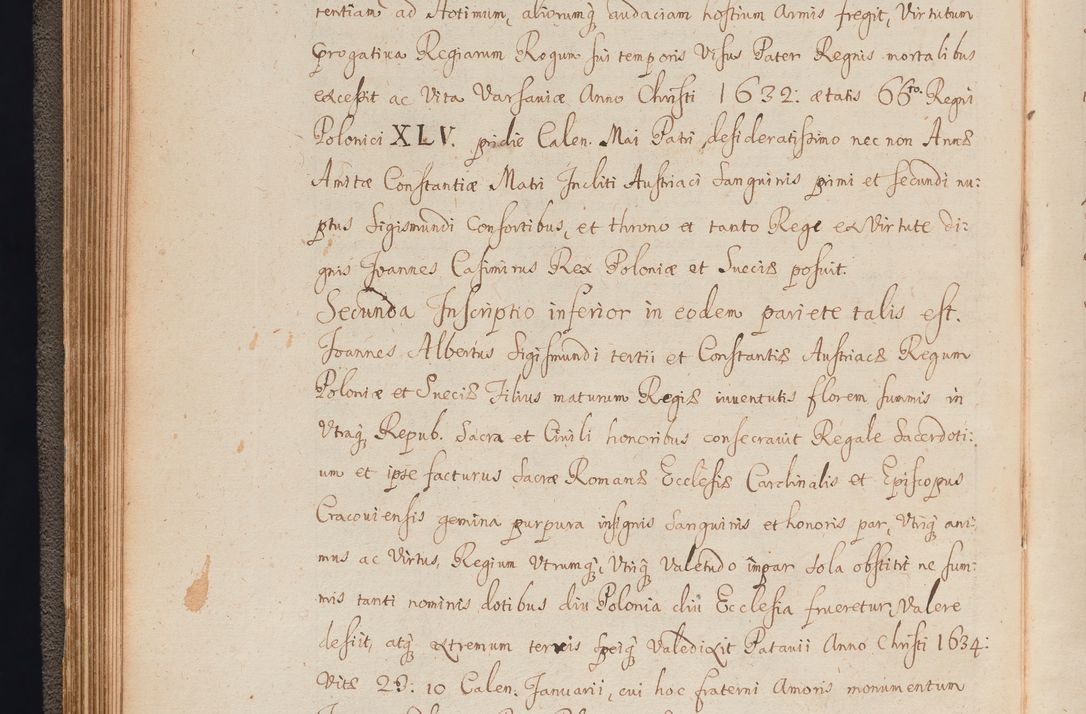 tentiam ad Hotimum, aliorumq̢ audaciam hostium Armis fregit, Virtutum
prrogativa Regiarum Regum sui temporis Visus Pater Regnis mortalibus
excessit ac Vita Varsaviæ Anno Christi 1632: ætatis 66to. Regni
Polonici XLV. pridie Calen. Mai Patri desideratissimo nec non Annæ
Amitæ Constantiæ Matri Incliti Austriaci Sanguinis primi et secundi nu:
ptus Sigismundi Consortibus, et throno et tanto Rege ex Virtute di:
gnis Joannes Casimirus Rex Poloniæ et Sueciæ posuit.
Secunda Inscriptio inferior in eodem pariete talis est.
Joannes Albertus Sigismundi tertii et Constantiæ Austriacæ Regum
Poloniæ et Sueciæ Filius maturum Regiæ iuventutis florem summis in
Vtraq̢ Repub. Sacra et Civili honoribus consecravit Regale Sacerdoti:
um et ipse facturus Sacræ Romanæ Ecclesiæ Cardinalis et Episcopus
Cracoviensis gemina purpura insignis Sanguinis et honoris par, Vtriq̢ ani:
mus ac Virtus, Regium Vtrumq̢, Vtriq̢ Valetudo impar Sola obstitit ne sum:
mis tanti nominis dotibus diu Polonia diu Ecclesia frueretur, Valere
desiit, atq̢ extremum terris Speiq̢ Valedixit Patavii Anno Christi 1634:
Vitæ 23: 10 Calen. Januarii, cui hoc fraterni Amoris monumentum